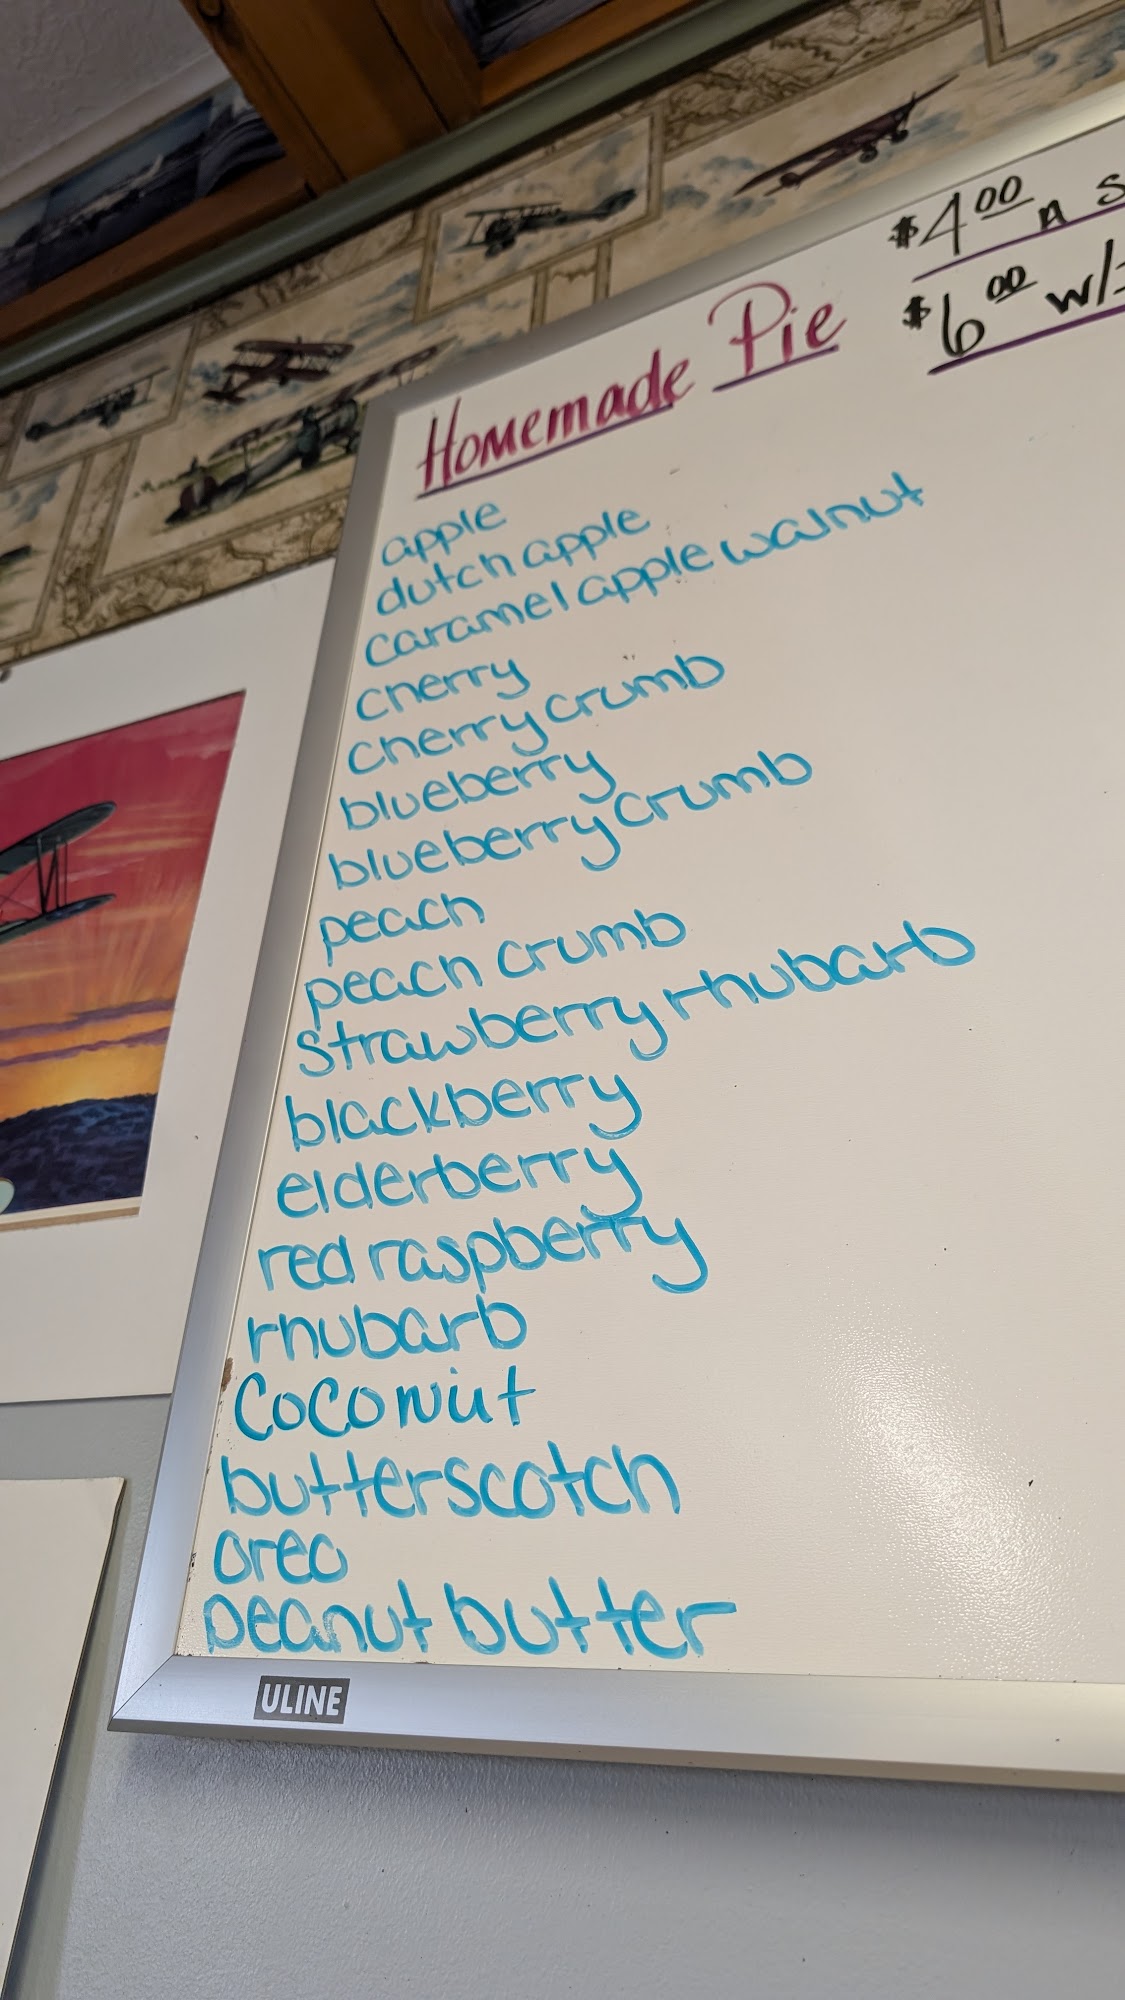 $4.00 A
$6.00 w/
Homemade Pie
apple
dutch apple
caramel apple walnut
cherry
cherry crumb
blueberry
blueberry crumb
peach
peach crumb
strawberry rhubarb
blackberry
elderberry
red raspberry
rhubarb
Coconut
butterscotch
oreo
peanut butter
ULINE